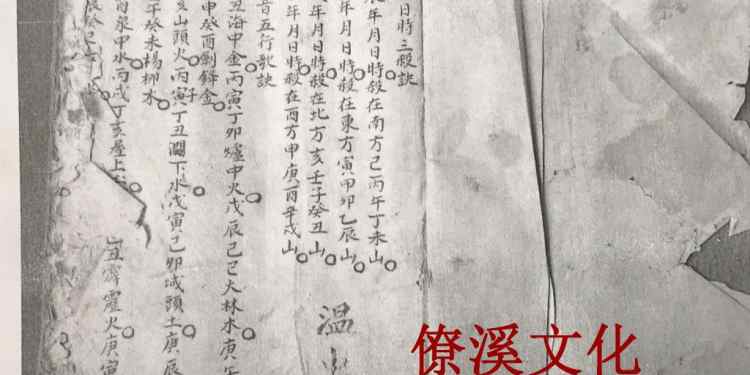 日時三殺訣
年月日時殺在南方巳丙午丁未山
年月日時殺在東方寅甲卯乙辰山
年月日時殺在北方亥壬子癸丑山
年月日時殺在西方申庚酉辛戌山
音五行歌訣
丑海中金丙寅丁卯爐中火戊辰己巳大林木庚午
申癸酉劍鋒金
亥山頭火丙子丁丑澗下水戊寅己卯城頭土庚辰
午癸未楊柳木
酉泉中水丙戌丁亥屋上
丑霹靂火庚寅
辰癸巳
温
僚溪文化